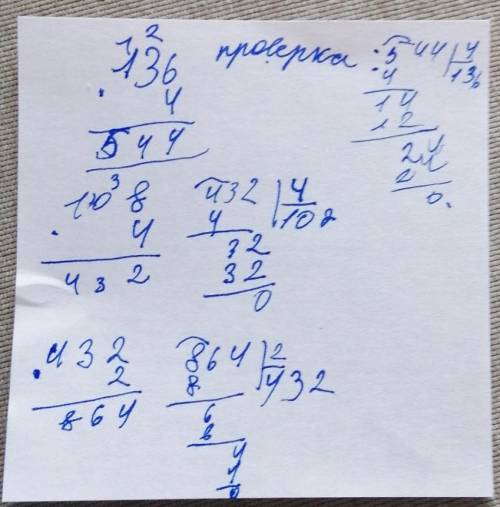 1 2
136 проверка 544 | 4
4 4 136
544 14
12
24
24
0.
3
108 432 | 4
4 4 108
432 32
32
0
432 864 | 2
2 8 432
864 6
6
4
4
0